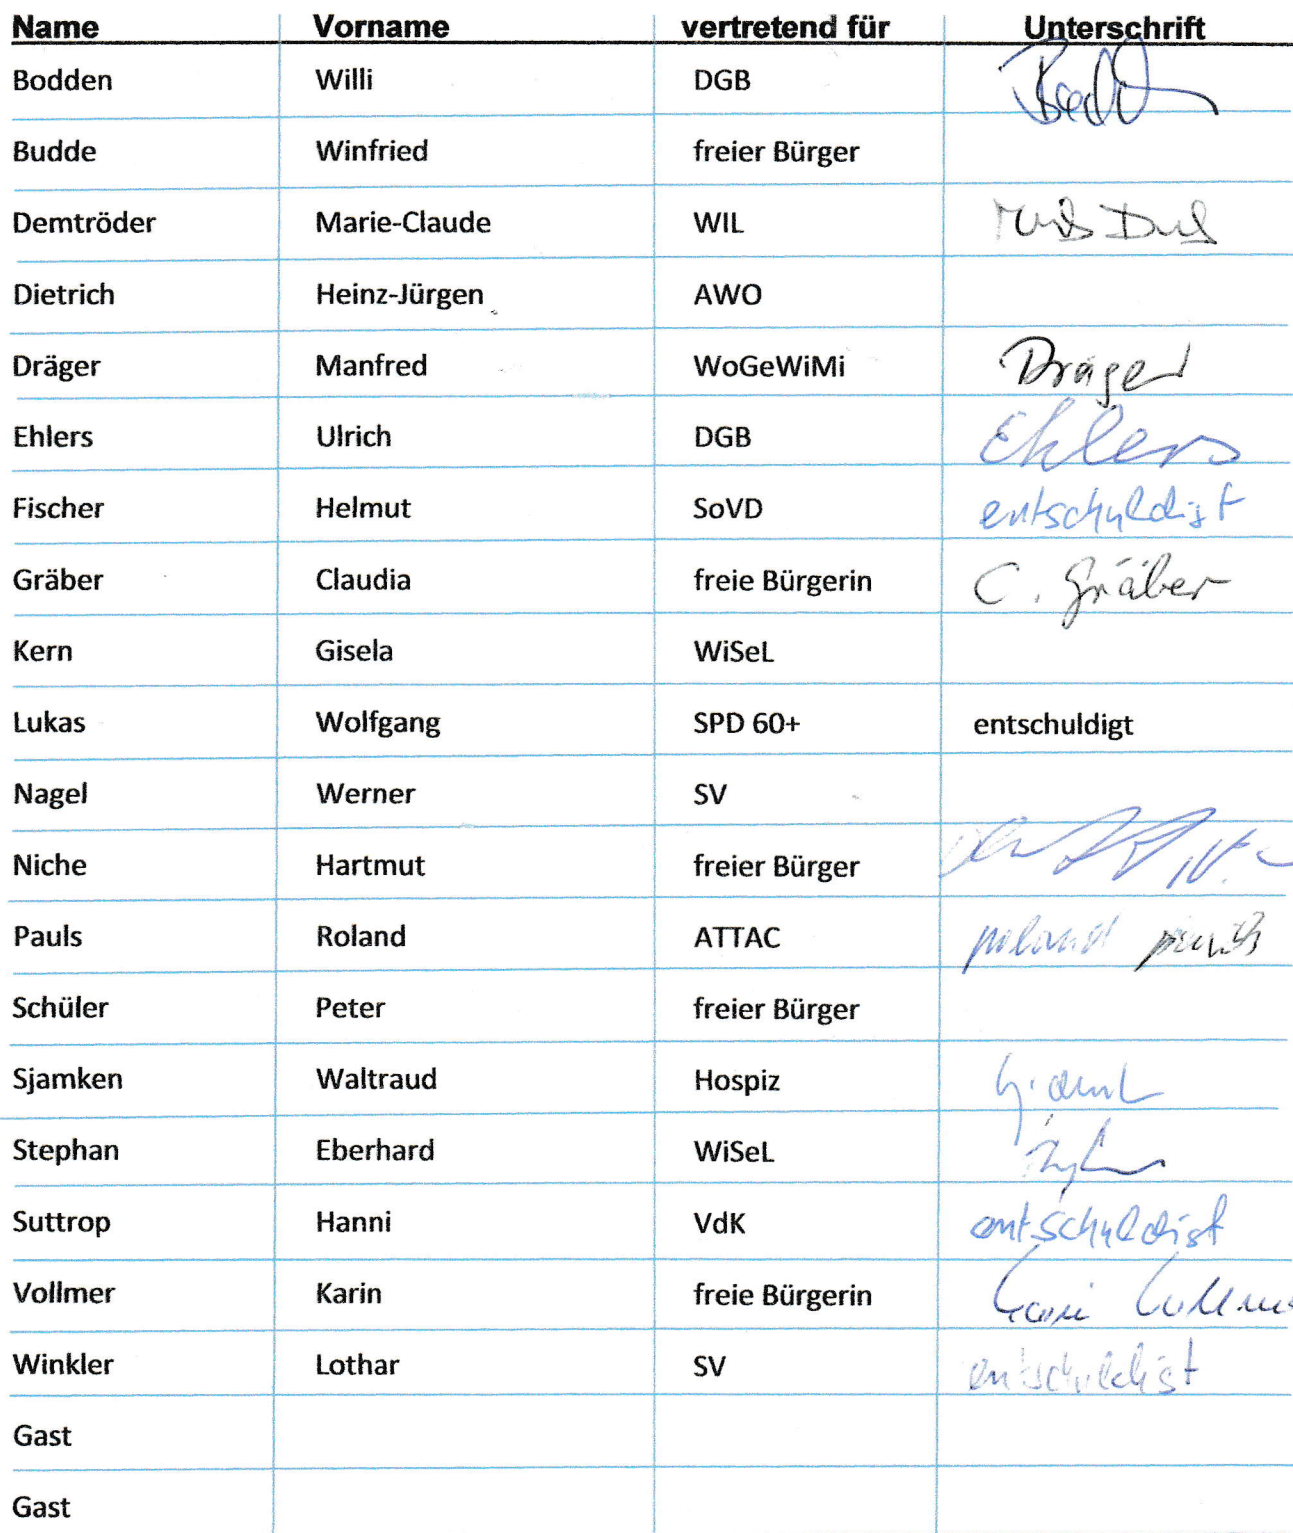 Name Vorname vertretend für Unterschrift
Bodden Willi DGB
Budde Winfried freier Bürger
Demtröder Marie-Claude WIL
Dietrich Heinz-Jürgen AWO
Dräger Manfred WoGeWiMi Dräger
Ehlers Ulrich DGB Ehlers
Fischer Helmut SoVD entschuldigt
Gräber Claudia freie Bürgerin C. Gräber
Kern Gisela WiSeL
Lukas Wolfgang SPD 60+ entschuldigt
Nagel Werner SV
Niche Hartmut freier Bürger
Pauls Roland ATTAC roland pauls
Schüler Peter freier Bürger
Sjamken Waltraud Hospiz
Stephan Eberhard WiSeL
Suttrop Hanni VdK entschuldigt
Vollmer Karin freie Bürgerin Karin Vollmer
Winkler Lothar SV entschuldigt
Gast
Gast